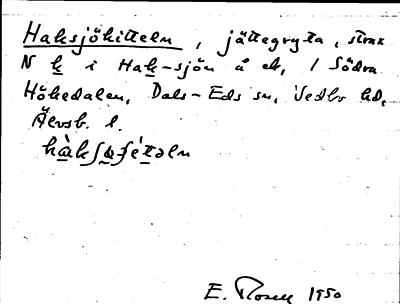 Haksjökitteln, jättegryta, strax
N k i Hak-sjön å ek, / Södra
Höhedalen, Dals-Eds sn, Vedbo hd,
Älvsb. l.
E. Rosell 1950